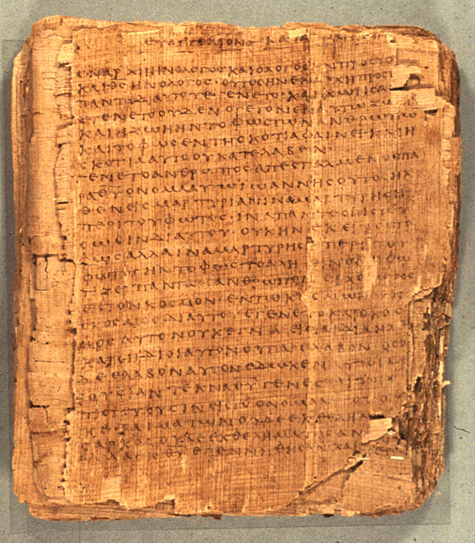 ΕΥΑΓΓΕΛΙΟΝ ΚΑ
ΕΝ ΑΡΧΗ ΗΝ Ο ΛΟΓΟϹ ΚΑΙ Ο ΛΟΓΟϹ ΗΝ ΠΡΟϹ ΤΟ
ΚΑΙ ΘϹ ΗΝ Ο ΛΟΓΟϹ ΟΥΤΟϹ ΗΝ ΕΝ ΑΡΧΗ ΠΡΟϹ
ΠΑΝΤΑ ΔΙ ΑΥΤΟΥ ΕΓΕΝΕΤΟ ΚΑΙ ΧΩΡΙϹ
ΕΓΕΝΕΤΟ ΟΥΔΕΝ Ο ΓΕΓΟΝΕΝ ΕΝ ΑΥΤΩ ΖΩ
ΚΑΙ Η ΖΩΗ ΗΝ ΤΟ ΦΩϹ ΤΩΝ ΑΝΘΡΩΠΩ
ΚΑΙ ΤΟ ΦΩϹ ΕΝ ΤΗ ϹΚΟΤΙΑ ΦΑΙΝΕΙ ΚΑΙ Η
ϹΚΟΤΙΑ ΑΥΤΟ ΟΥ ΚΑΤΕΛΑΒΕΝ
ΕΓΕΝΕΤΟ ΑΝΘΡΩΠΟϹ ΑΠΕϹΤΑΛΜΕΝΟϹ ΠΑ
ΘΥ ΟΝΟΜΑ ΑΥΤΩ ΙΩΑΝΝΗϹ ΟΥΤΟϹ ΗΛ
ΘΕΝ ΕΙϹ ΜΑΡΤΥΡΙΑΝ ΙΝΑ ΜΑ
ΠΕΡΙ ΤΟΥ ΦΩΤΟϹ ΙΝΑ ΠΑΝΤΕϹ ΠΙϹΤΕΥ
ϹΩϹΙΝ ΔΙ ΑΥΤΟΥ ΟΥΚ ΗΝ ΕΚΕΙΝΟϹ ΤΟ
ΦΩϹ ΑΛΛΑ ΙΝΑ ΜΑΡΤΥΡΗϹΗ ΠΕΡΙ ΤΟΥ
ΦΩΤΟϹ ΗΝ ΤΟ ΦΩϹ ΤΟ ΑΛΗΘΙΝΟΝ Ο ΦΩ
ΤΙΖΕΙ ΠΑΝΤΑ ΑΝΘΡΩΠΟΝ
ΕΙϹ ΤΟΝ ΚΟϹΜΟΝ ΕΝ ΤΩ ΚΟϹΜΩ ΗΝ
ΚΟϹΜΟϹ ΔΙ ΑΥΤΟΥ ΕΓΕΝΕΤΟ ΚΑΙ Ο ΚΟ
ΜΟϹ ΑΥΤΟΝ ΟΥΚ ΕΓΝΩ ΕΙϹ ΤΑ ΙΔΙΑ ΗΛ
ΚΑΙ ΟΙ ΙΔΙΟΙ ΑΥΤΟΝ ΟΥ ΠΑΡΕΛΑΒΟΝ ΟϹΟΙ
ΔΕ ΕΛΑΒΟΝ ΑΥΤΟΝ ΕΔΩΚΕΝ ΑΥΤΟΙϹ
ΟΥϹΙΑΝ ΤΕΚΝΑ ΘΥ ΓΕΝΕϹΘΑΙ
ΠΙϹΤΕΥΟΥϹΙΝ ΕΙϹ ΤΟ ΟΝΟΜΑ
ΟΥΚ ΕΞ ΑΙΜΑΤΩΝ ΟΥΔΕ ΕΚ ΘΕΛΗΜ
ϹΑΡΚΟϹ ΟΥΔΕ ΕΚ ΘΕΛΗΜΑΤΟϹ
ΑΛΛ ΕΚ ΘΥ ΕΓΕΝΝΗΘΗϹΑΝ ΚΑΙ